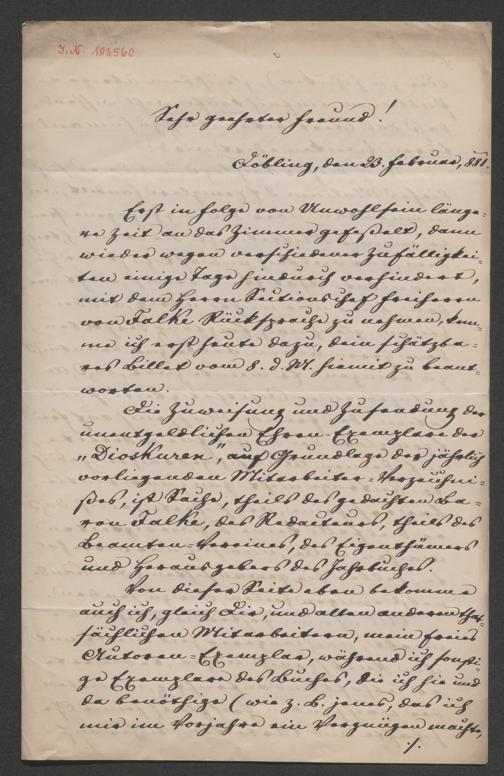 I.N. 103560
Sehr geehrter Freund!
Döbling, den 23. Februar, 881.
Erst in Folge von Unwohlsein länge-
re Zeit an das Zimmer gefeßelt, dann
wieder wegen verschiedener Zufälligkei-
ten einige Tage hindurch verhindert,
mit dem Herrn Sectionschef Freiherrn
von Falke Rücksprache zu nehmen, kom-
me ich erst heute dazu, dein schätzba-
res Billet vom 8. d. M. hiemit zu beant-
worten.
Die Zuweisung und Zusendung der
unentgeldlichen Ehren-Exemplare der
"Dioskuren", auf Grundlage der jährlich
vorliegenden Mitarbeiter-Verzeichni-
ßes, ist Sache, theils des gedachten Ba-
ron Falke, des Redacteurs, theils des
Beamten-Vereines, des Eigenthümers
und Herausgebers des Jahrbuches.
Von dieser Seite eben bekomme
auch ich, gleich Dir, und allen anderen that-
sächlichen Mitarbeitern, mein freies
Autoren-Exemplar, während ich sonsti-
ge Exemplare des Buches, die ich hie und
da benöthige (wie z. B. jenes, das ich
mir im Vorjahre ein Vergnügen machte,
./.